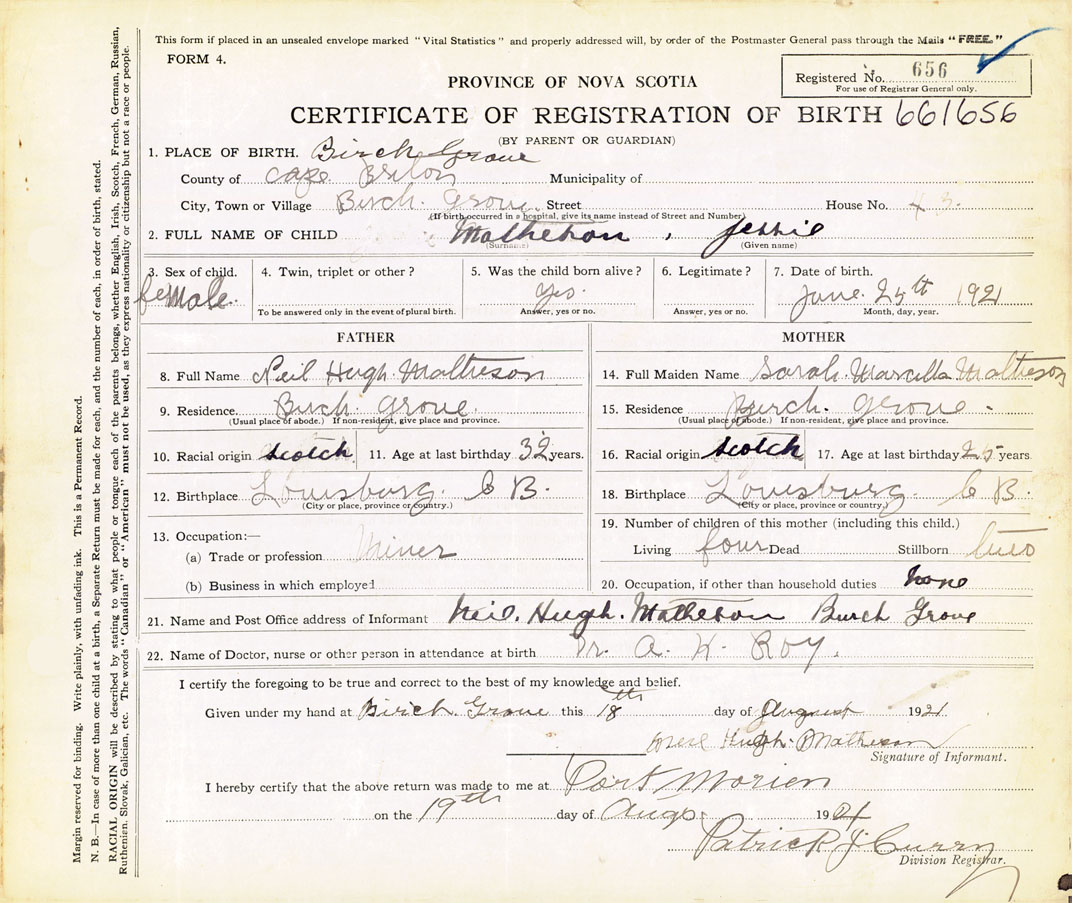 This form if placed in an unsealed envelope marked "Vital Statistics" and properly addressed will, by order of the Postmaster General pass through the Mails "FREE."
FORM 4.
Registered No. 656
For use of Registrar General only.
PROVINCE OF NOVA SCOTIA
CERTIFICATE OF REGISTRATION OF BIRTH 661656
(BY PARENT OR GUARDIAN)
1. PLACE OF BIRTH. Birch Grove
County of Cape Breton Municipality of
City, Town or Village Birch Grove Street House No.
(If birth occurred in a hospital, give its name instead of Street and Number)
2. FULL NAME OF CHILD Matheson, Jessie
(Surname) (Given name)
3. Sex of child. female.
4. Twin, triplet or other?
To be answered only in the event of plural birth.
5. Was the child born alive? yes.
Answer, yes or no.
6. Legitimate?
Answer, yes or no.
7. Date of birth.
June. 25th 1921
Month, day, year.
FATHER
8. Full Name Neil Hugh Matheson
9. Residence. Birch. Grove.
(Usual place of abode.) If non-resident, give place and province.
10. Racial origin Scotch 11. Age at last birthday 32 years.
12. Birthplace Louisburg. C B.
(City or place, province or country.)
13. Occupation:—
(a) Trade or profession Miner
(b) Business in which employed
MOTHER
14. Full Maiden Name Sarah. Marcella Matheson
15. Residence Birch. Grove.
(Usual place of abode.) If non-resident, give place and province.
16. Racial origin Scotch 17. Age at last birthday 25 years
18. Birthplace Louisburg. C B.
(City or place, province or country.)
19. Number of children of this mother (including this child.)
Living four Dead Stillborn two
20. Occupation, if other than household duties none
21. Name and Post Office address of Informant Neil. Hugh. Matheson Burch Grove
22. Name of Doctor, nurse or other person in attendance at birth Dr. A. K. Roy.
I certify the foregoing to be true and correct to the best of my knowledge and belief.
Given under my hand at Birch. Grove this 18th day of August 1921
Neil Hugh. Matheson
Signature of Informant.
I hereby certify that the above return was made to me at Port Morien
on the 19th day of Augs. 1921
Patrick J. Curry
Division Registrar.
Margin reserved for binding. Write plainly, with unfading ink. This is a Permanent Record.
N. B.—In case of more than one child at a birth, a Separate Return must be made for each, and the number of each, in order of birth, stated.
RACIAL ORIGIN will be described by stating to what people or tongue each of the parents belongs, whether English, Irish, Scotch, French, German, Russian,
Ruthenian, Slovak, Galician, etc. The words "Canadian" or "American" must not be used, as they express nationality or citizenship but not a race or people.